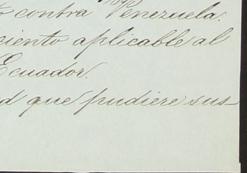 contra Venezuela.
ciento aplicable al
Ecuador.
d que pudiere sus